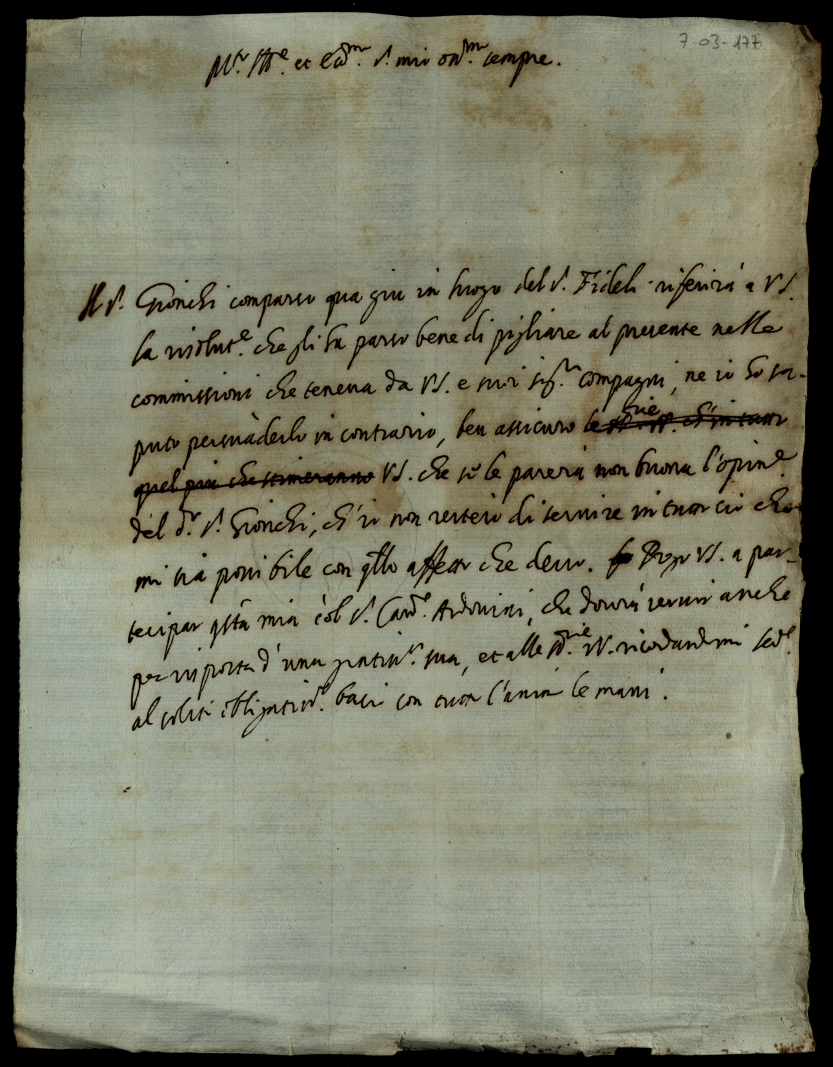 7-03-177
M.to Ill.re et Ecc.mo S.r mio oss.mo sempre.
Il S.r Gionchi comparso qua giu in luogo del S.r Fideli riferirà a VS.
la risolut.e che gli ha parso bene di pigliare al presente nelle
commissioni che teneva da VS. e suoi sig.ri compagni, ne io ho sa-
puto persuaderlo in contrario, ben assicuro le SS.rie VV. ch'in tutto
quel più che stimeranno VS. che se le parerà non buona l'opin.e
del d.o S.r Gionchi, ch'io non resterò di servire in tutto ciò che
mi sia possibile con q.llo affetto che devo. Prego VS. a par-
tecipar q.sta mia col S.r Cav.re Ardouini, che dovrà servir anche
per risposta d'una sua, et alle SS.rie VV. ricordandomi
al solito bacio con tutto l'animo le mani.